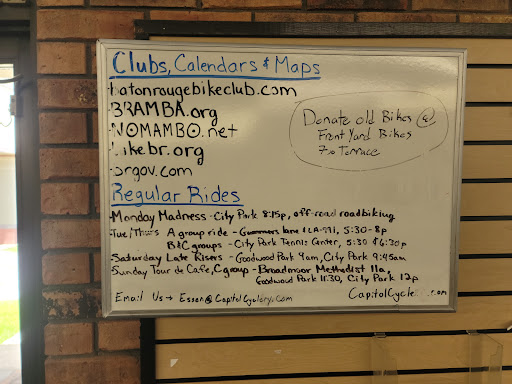 Clubs, Calendars & Maps
batonrougebikeclub.com
BRAMBA.org
NOMAMBO.net
bikebr.org
brgov.com
Donate old Bikes @
Front Yard Bikes
Terrace
Regular Rides
Monday Madness - City Park 8:15p, off-road roadbiking
Tue/Thurs A group ride - lane & LA-991, 5:30-8p
B&C groups - City Park Tennis Center, 5:30 & 6:30p
Saturday Late Risers - Goodwood Park 9am, City Park 9:45am
Sunday Tour de Cafe, C group - Broadmoor Methodist 11a,
Goodwood Park 11:30, City Park 12p
Email Us → @CapitolCyclery.com
CapitolCycle .com